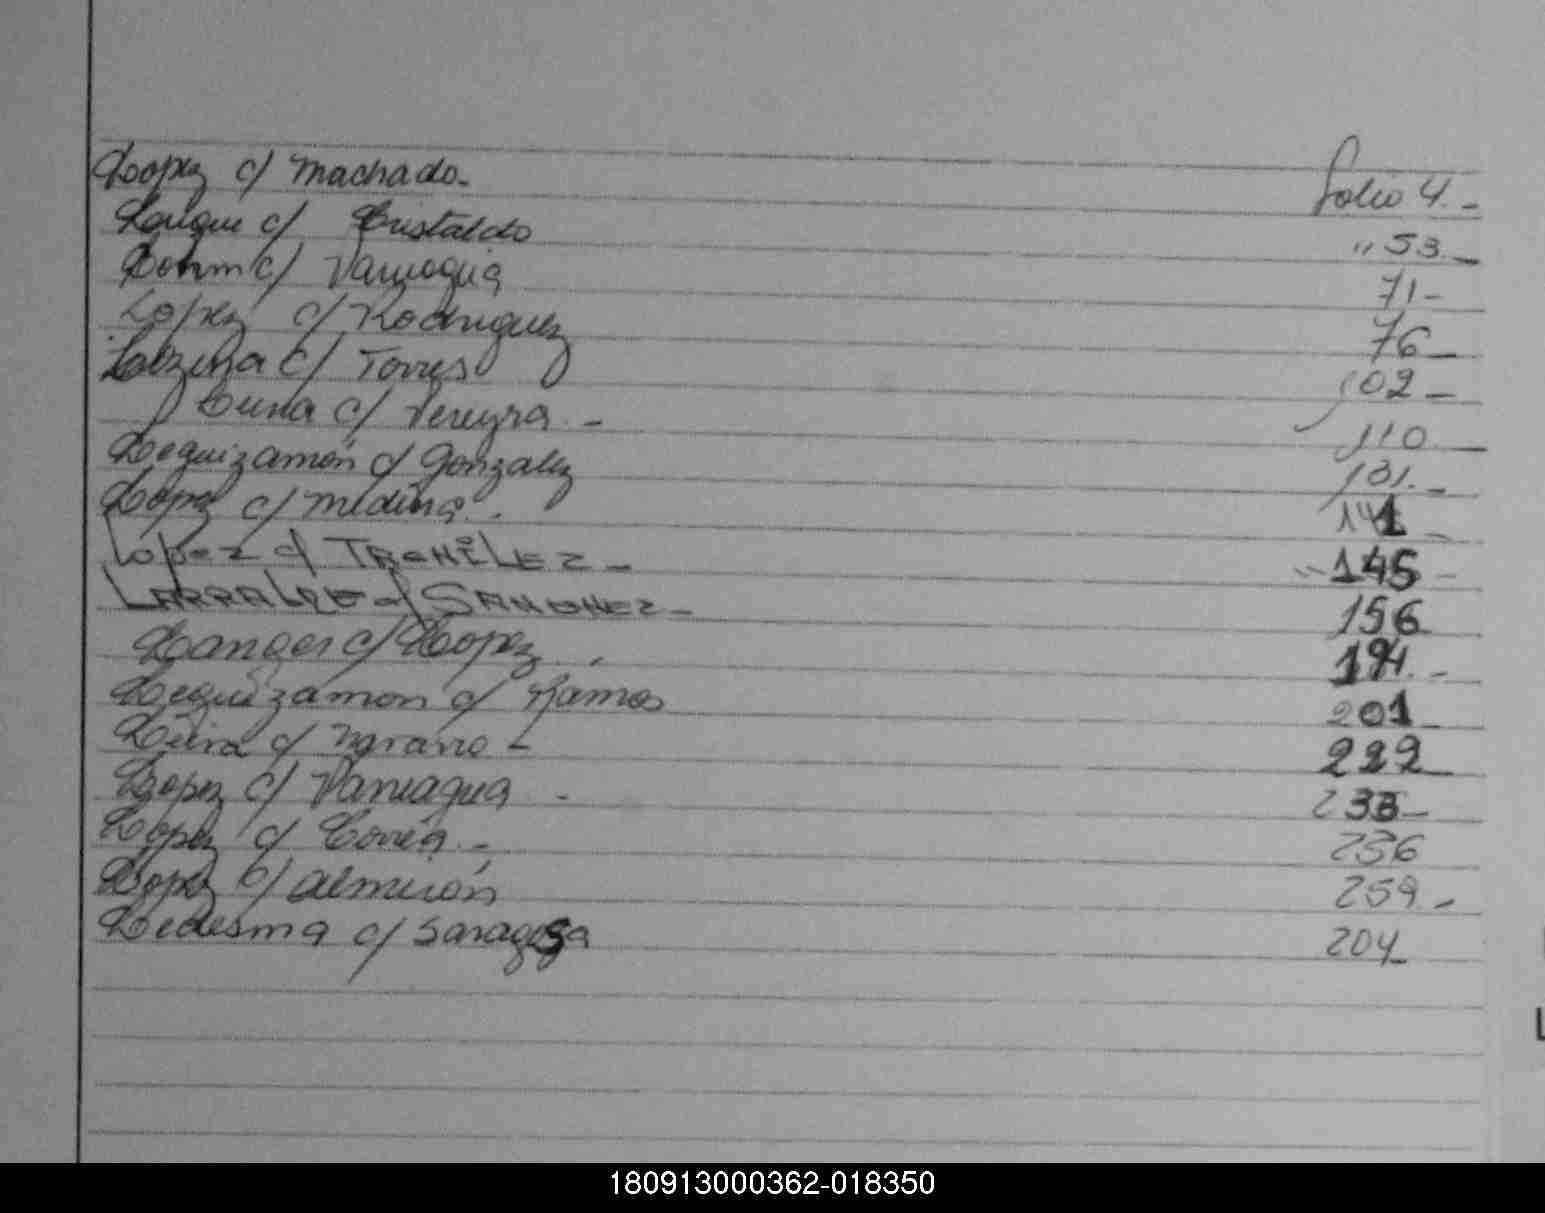 Lopez c/ Machado.- folio 4.-
Luque c/ Cristaldo " 53.-
c/ Paniagua 71-
Lopez c/ Rodriguez 76-
c/ Torres 102-
Luna c/ Pereyra.- 110.-
Leguizamón c/ Gonzalez 131.-
Lopez c/ Medina.- 141-
Lopez c/ - " 145-
LARRALDE c/ SANCHEZ- 156
Langer c/ Lopez. 194.-
Leguizamon c/ Ramos 201-
c/ - 222-
Lopez c/ Paniagua - 233-
Lopez c/ Correa.- 236
Lopez c/ Almirón 259.-
Ledesma c/ Saragosa 204-
L
180913000362-018350